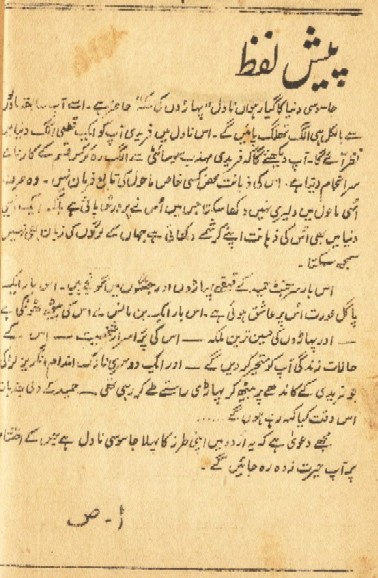 پیش لفظ
جاسوسی دنیا کا گیارہواں ناول "پہاڑوں کی ملکہ" حاضر ہے۔ اسے آپ سابقہ ناولوں
سے بالکل ہی الگ تھلگ پائیں گے۔ اس ناول میں فریدی آپ کو ایک قطعی الگ دنیا میں
نظر آئے گا۔ آپ دیکھیں گے کہ فریدی مہذب سوسائٹی سے الگ رہ کر کس طرح کے کارنامے
سر انجام دیتا ہے۔ اس کی ذہانت محض کسی خاص ماحول کی تابع فرمان نہیں۔ وہ صرف
اسی ماحول میں دلیری نہیں دکھا سکتا جس میں اُس نے پرورش پائی ہے بلکہ ایک ایسی
دنیا میں بھی اُس کی ذہانت اپنے کرشمے دکھاتی ہے جہاں کے لوگوں کی زبان بھی نہیں
سمجھ سکتا۔
اس بار سرجنٹ حمید کے قہقہے پہاڑوں اور جنگلوں میں گونجے ہیں۔ اس بار ایک
پاگل عورت اُس پر عاشق ہوئی ہے۔ اس بار ایک بن مانس نے اس کی
— اور پہاڑوں کی حسین ترین ملکہ — اس کی پُر اسرار شخصیت — اس کے
حالات زندگی آپ کو متحیر کر دیں گے — اور ایک دوسری نازک اندام انگریز لڑکی
جو فریدی کے کاندھے پر بیٹھ کر پہاڑی راستے طے کر رہی تھی — حمید کے دلی جذبات
اس وقت کیا کہہ رہے ہوں گے .....
مجھے دعویٰ ہے کہ یہ اُردو میں اپنی طرز کا پہلا جاسوسی ناول ہے جس کے اختتام
پر آپ حیرت زدہ رہ جائیں گے۔
ا - ص